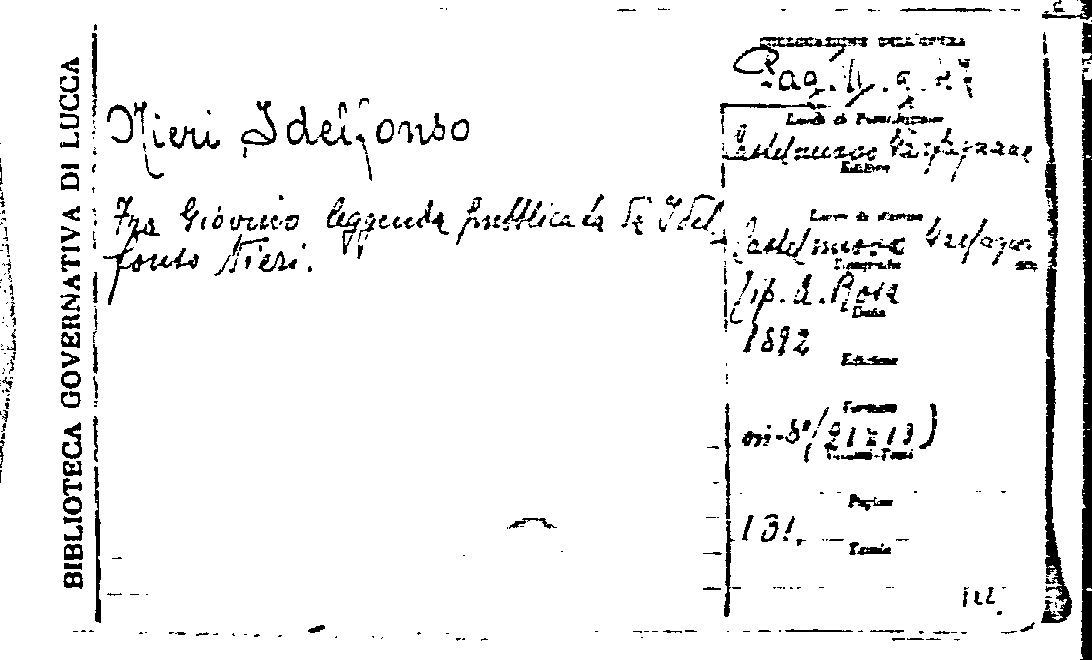 BIBLIOTECA GOVERNATIVA DI LUCCA
Nieri Idelfonso
Fra Giovanni leggenda pubblicata da Idel-
fonso Nieri.
COLLOCAZIONE DELL'OPERA
Luogo di Pubblicazione
Castelnuovo Garfagnana
Editore
Luogo di stampa
Castelnuovo Garfagna
na
Tipografia
Tip. A. Rosa
Data
1892
Edizione
Formato
in-8°(21x13)
Volumi-Tomi
Pagine
131.
Tavole